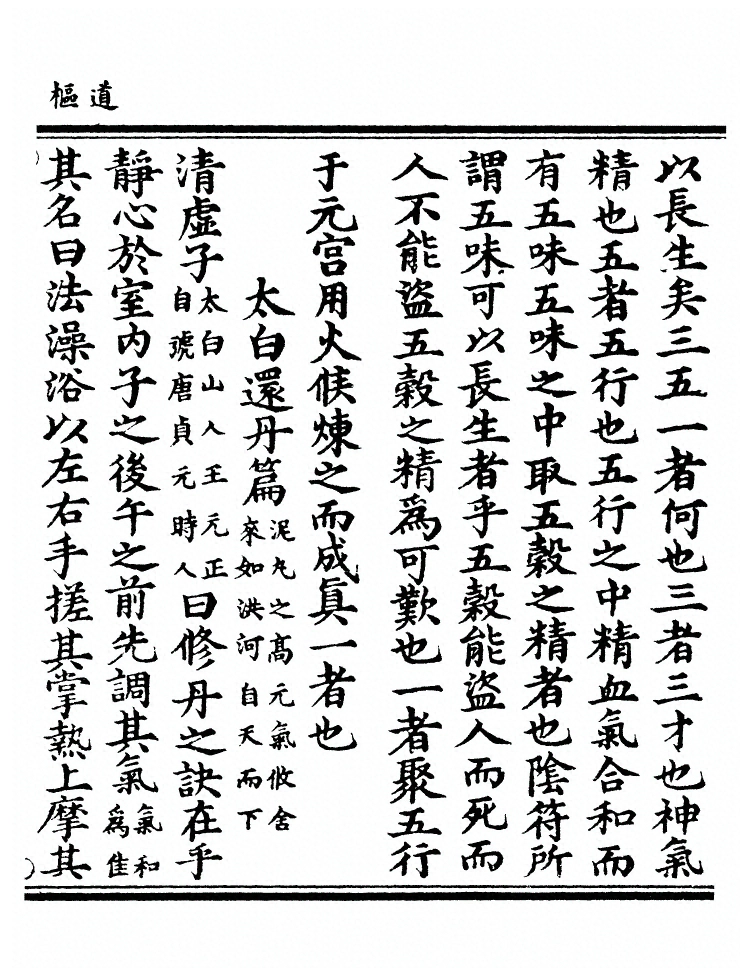 道樞
以長生矣三五一者何也三者三才也神氣
精也五者五行也五行之中精血氣合和而
有五味五味之中取五穀之精者也陰符所
謂五味可以長生者乎五穀能盜人而死而
人不能盜五穀之精爲可歎也一者聚五行
于元宫用火候煉之而成眞一者也
太白還丹篇泥丸之高元氣攸舍來如洪河自天而下
清虛子太白山人王元正自號唐貞元時人曰修丹之訣在乎
靜心於室内子之後午之前先調其氣氣和爲佳
其名曰法澡浴以左右手搓其掌熱上摩其